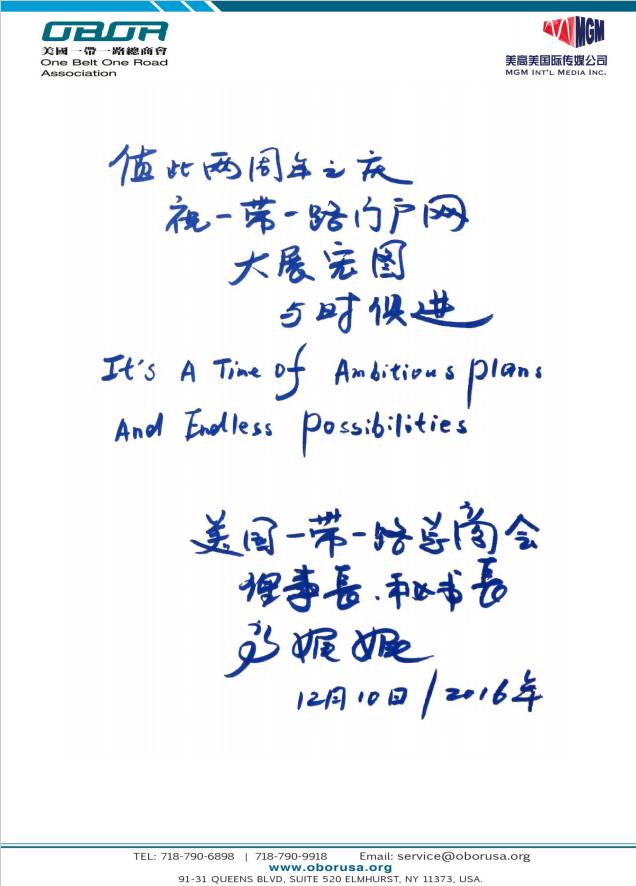 OBOR
美國一帶一路總商會
One Belt One Road
Association
MGM
美高美国际传媒公司
MGM INT'L MEDIA INC.
值此两周年之庆
祝一带一路门户网
大展宏图
与时俱进
It's A Time Of Ambitious plans
And Endless possibilities
美国一带一路总商会
理事長、秘书長
娓娓
12月10日/2016年
TEL: 718-790-6898 | 718-790-9918 Email: service@oborusa.org
www.oborusa.org
91-31 QUEENS BLVD, SUITE 520 ELMHURST, NY 11373, USA.